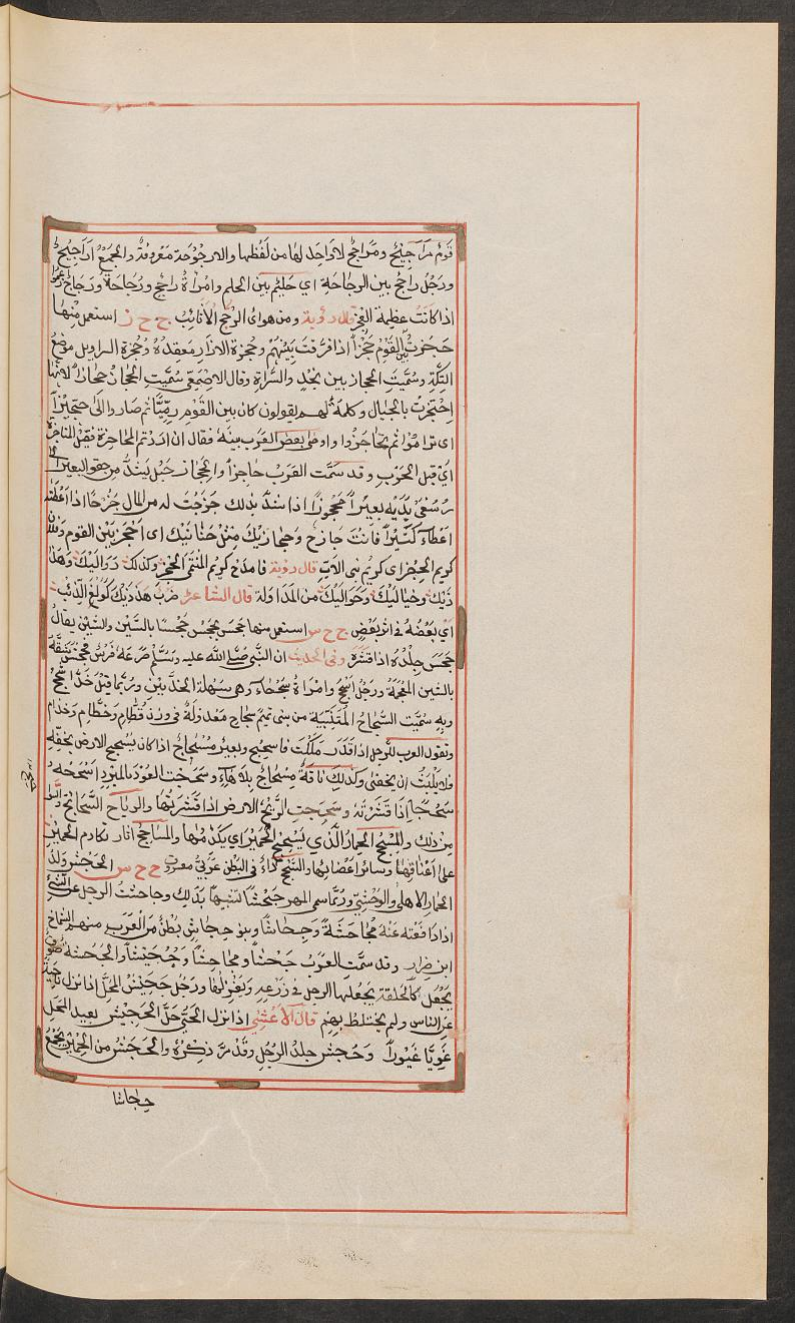 قَوْمٌ مَرَاجِيْحُ ومَرَاجِحُ لاوَاحِدَ لها من لَفْظِها والارجُوْحَة مَعْرُوفَةٌ والجَمْعُ اَرَاجِيْحُ
ورَجُلٌ راجحٌ بين الرجَاحَةِ اي حَلِيْمٌ بين الحلم وامْرَاةٌ راجحٌ ورُجَاحَةٌ ورَجَاحٌ
اذا كانَتْ عظيمةَ العَجز قال رؤبة ومن هواى الرُّجُحُ الاَثَائِبُ ج ح ز استعمل منها
حَجَزتُ بين القَوْمِ حَجْزًا اذا فرَّقْتَ بَيْنَهُم وحُجزة الازارِ مَعقِدهُ وحُجزة السراويل موضعُ
التِكَّةِ وسُمّيتِ الحِجاز بين نَجْدٍ والسَّراةِ وقال الاصمَعىّ سُمّيتِ الحِجازُ حِجازًا لانّها
احْتَجزت بالجِبال وكلمةٌ لهم يقولون كان بين القَوْمِ رِمِّيَّا ثم صاروا الَى حِجِّيْزَا
اى تَرامَوْا ثم تحاجَزُوا واوصَى بعض العَرب بينه فقال ان اردتم المحاجزة فقَبْلَ المناجزة
اى قَبلَ الحَرْبِ وقد سَمَّت العَربُ حاجِزًا والحِجاز حَبْل يُشَدُّ مِن حِقوِ البعير الى
رُسْغَىْ يَدَيْه بعيرًا مَحجوزًا اذا شُدَّ بذلك جَزَحْتُ له من المال جَزْحًا اذا اَعْطَيْتَه
اعْطاءً كثيرًا فانتَ جازِحٌ وحَجازَيْكَ مثل حَنَانَيْكَ اى احْجُزْ بَيْن القوم وفلان
كريمُ الحِجْزِ اى كريم بنى الاب قال رؤبة فامدَحْ كريم المُنْتَمَى والحِجْزِ وكذلك دَوَالَيْكَ وهَذَا
ذَيْكَ وحَبَالَيْكَ وحَوَالَيْكَ من المدَاولة قال الشاعر ضَرْبٌ هَذَذَيْكَ كَوَلْغِ الذِّئْبِ
اى بَعْضُهُ فى اثرِ بَعْضٍ ج ح س استعمل منها جَحَس يَجْحَس جَحْسًا بالسّين والشين يقال
جَحَسَ جِلْدُهُ اذا قَشَرَهُ وفى الحديث ان النَّبى صَلَّى الله عليه وسَلَّم صَرَعَهُ فَرَسٌ فجُحِشَ شِقُّهُ
بالشين المعجمة ورَجُل اَسْجَحُ وامْرَاةٌ سَجْحاءُ وهى سَهْلة الخدَّين ورُبَّما قيل خدٌّ اَسْجَحُ
وبِه سُمّيَت السَّجَاحُ المُتَنَبِّيَة من بنى تميم سَجاحِ مَعْدولَةٌ فى وزن قَطَامِ وحَذَامِ
وتقول العرب للرجل اذا قَدَر مَلَكْتَ فَاَسجِح وبعيرٌ مِسْحاجٌ اذا كان يَسْحَجُ الارض بخُفِّه
ولا يَلْبَثُ ان يَحْفَى وكذلك ناقةٌ مِسْحاجٌ بلا هَاءٍ وسَحَجْتُ العُودَ بالمِبْرَد اَسْحَجُه
سَحْجًا اذا قَشَرْتَهُ وسَحَجتِ الرّيحُ الارض اذا قَشَرَتْها والرياح السَّواحِجُ
مِن ذلك والمِسْحَجُ الحِمارُ الَّذى يَسْحَجُ الحَمِيْرَ اى يَكْدِمُها والمَساحِجُ آثار تكادُم الحَمِيْرِ
على اعْناقِها وسائرِ اعْضائِها والسَّحْجُ دَاءٌ فى البَطْنِ عَرَبىٌّ معروف ج ح ش الجَحْشُ وَلَدُ
الحمارِ الاهلىّ والوحشىّ ورُبّما سمى المهر جَحْشًا تشبيهًا بذلك وجاحَشْتُ الرجل عن الشئ
اذا دَافَعْته عَنْهُ مُجاحَشَةً وجِحاشًا وبنو جِحَاشٍ بَطْنٌ من العَرب منهم الشَّمّاخ
ابن ضِرار وقد سمَّت العَربُ جَحْشًا ومُجاحِشًا وجُحَيْشًا والجُحْشَة صُوف
يُجْعَلُ كالحَلْقة يجعلها الرجل فى ذراعِه ويَغْزِلُها ورَجُل جَحِيْشُ المَحَلِّ اذا نزل ناحِيَةً
عن الناس ولم يختلط بِهِم قال الاعْشى اذا نزل الحَىُّ حَلَّ الجَحِيْشُ بعيدَ المَحَلِّ
غَوِيًّا غَيُورًا وجُحِشَ جلدُ الرجُلِ وقَدْ مَرَّ ذِكْرُهُ والجَحْشُ من الحَمِيْرِ يُجْمَعُ
جحاشا